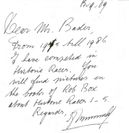 Dear Mr. Bader.
From 19 till 1986
I have competed in
Historic Racer. You
will find mistakes in
the books of Rob Box
about Historic Racer 1-
Regards,